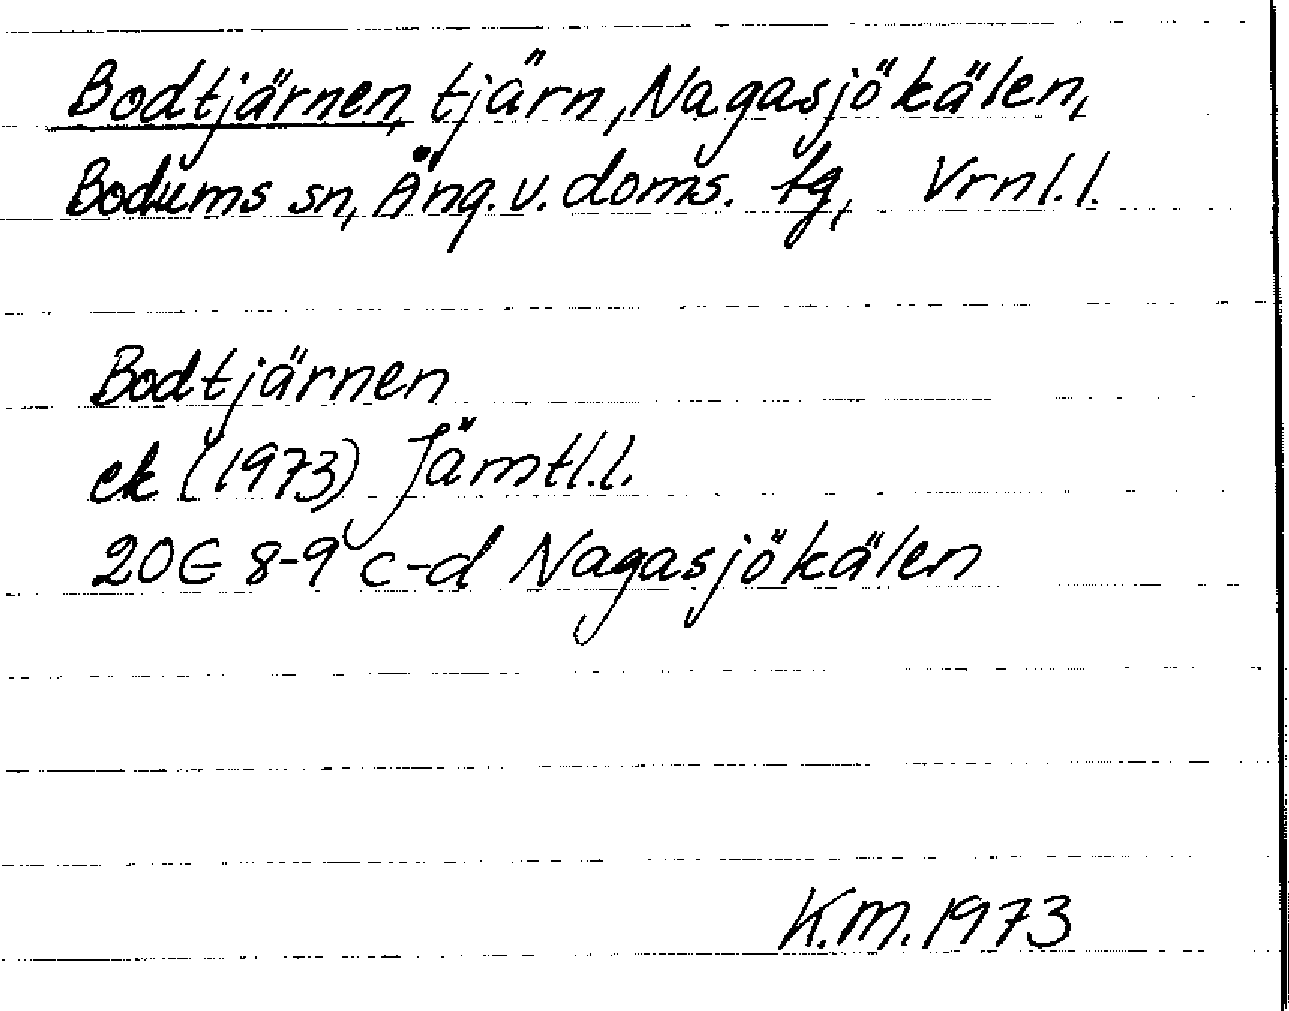 Bodtjärnen, tjärn, Nagasjökälen,
Bodums sn, Ång. v. doms. tg, Vrnl. l.
Bodtjärnen
ek (1973) Jämtl. l.
20G 8-9 c-d Nagasjökälen
K.M. 1973